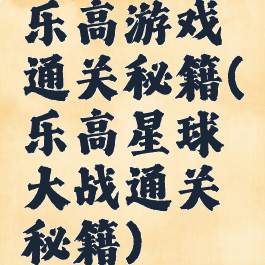 乐高游戏
通关秘籍(
乐高星球
大战通关
秘籍)